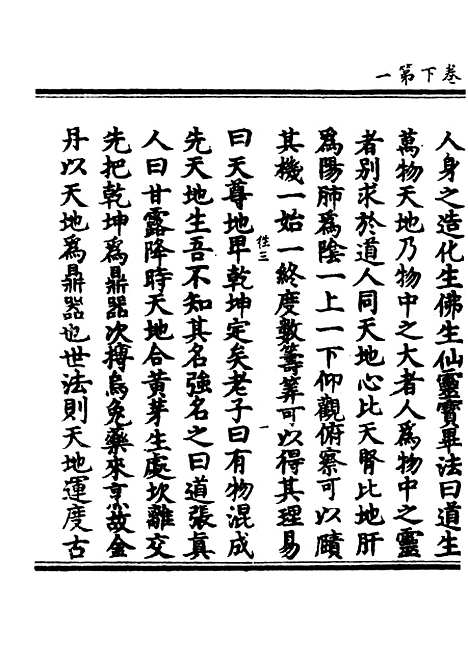 卷下第一
人身之造化生佛生仙靈寶畢法曰道生
萬物天地乃物中之大者人爲物中之靈
者别求於道人同天地心比天腎比地肝
爲陽肺爲陰一上一下仰觀俯察可以賾
其機一始一終度數籌筭可以得其理易
性三
一
曰天尊地卑乾坤定矣老子曰有物混成
先天地生吾不知其名強名之曰道張眞
人曰甘露降時天地合黃芽生處坎離交
先把乾坤爲鼎器次摶烏兔藥來烹故金
丹以天地爲鼎器也世法則天地運度古